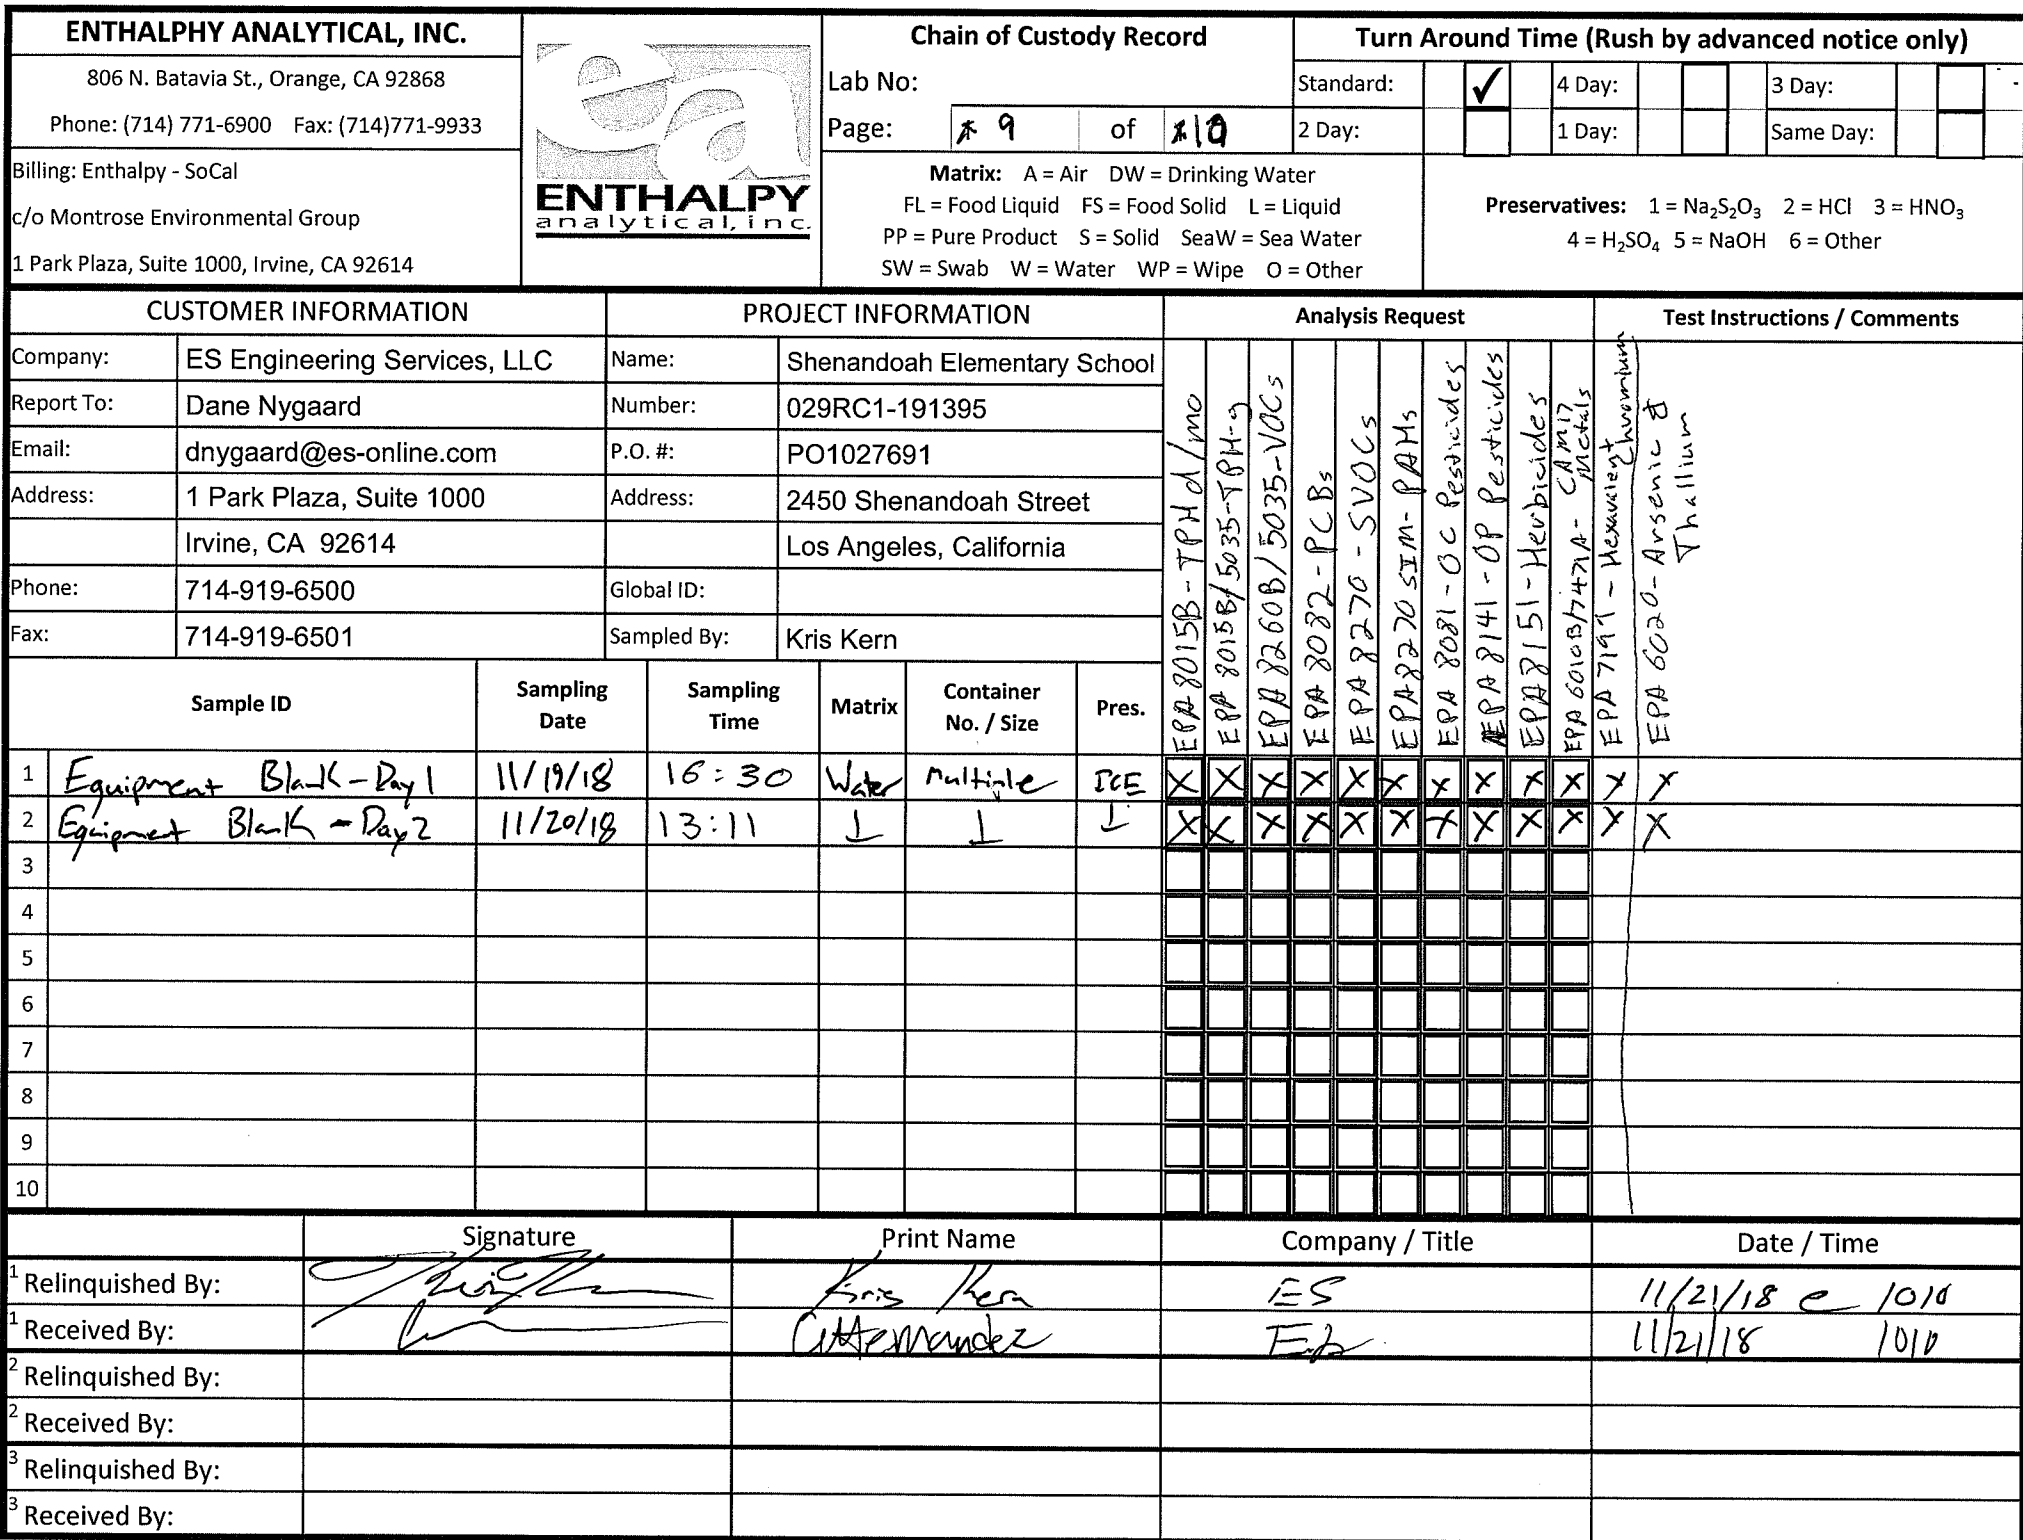 ENTHALPHY ANALYTICAL, INC.
806 N. Batavia St., Orange, CA 92868
Phone: (714) 771-6900 Fax: (714)771-9933
Billing: Enthalpy - SoCal
c/o Montrose Environmental Group
1 Park Plaza, Suite 1000, Irvine, CA 92614
ea
ENTHALPY
analytical, inc.
Chain of Custody Record
Lab No:
Page: 9 of 10
Matrix: A = Air DW = Drinking Water
FL = Food Liquid FS = Food Solid L = Liquid
PP = Pure Product S = Solid SeaW = Sea Water
SW = Swab W = Water WP = Wipe O = Other
Turn Around Time (Rush by advanced notice only)
Standard: ✓ 4 Day: 3 Day:
2 Day: 1 Day: Same Day:
Preservatives: 1 = Na₂S₂O₃ 2 = HCl 3 = HNO₃
4 = H₂SO₄ 5 = NaOH 6 = Other
CUSTOMER INFORMATION
Company: ES Engineering Services, LLC
Report To: Dane Nygaard
Email: dnygaard@es-online.com
Address: 1 Park Plaza, Suite 1000
Irvine, CA 92614
Phone: 714-919-6500
Fax: 714-919-6501
PROJECT INFORMATION
Name: Shenandoah Elementary School
Number: 029RC1-191395
P.O. #: PO1027691
Address: 2450 Shenandoah Street
Los Angeles, California
Global ID:
Sampled By: Kris Kern
Analysis Request
EPA 8015B-TPH d/mo
EPA 8015B/5035-TPH-g
EPA 8260B/5035-VOCs
EPA 8082-PCBs
EPA 8270-SVOCs
EPA 8270 SIM-PAHs
EPA 8081-OC Pesticides
EPA 8141-OP Pesticides
EPA 8151-Herbicides
EPA 6010B/7471A- CAM17 Metals
EPA 7199-Hexavalent Chromium
EPA 6020-Arsenic & Thallium
Test Instructions / Comments
Sample ID Sampling Date Sampling Time Matrix Container No. / Size Pres.
1 Equipment Blank-Day1 11/19/18 16:30 Water Multiple ICE X X X X X X X X X X X X
2 Equipment Blank-Day2 11/20/18 13:11 ↓ ↓ ↓ X X X X X X X X X X X X
3
4
5
6
7
8
9
10
Signature Print Name Company / Title Date / Time
1 Relinquished By: Kris Kern ES 11/21/18 @ 1010
1 Received By: 11/21/18 1010
2 Relinquished By:
2 Received By:
3 Relinquished By:
3 Received By: